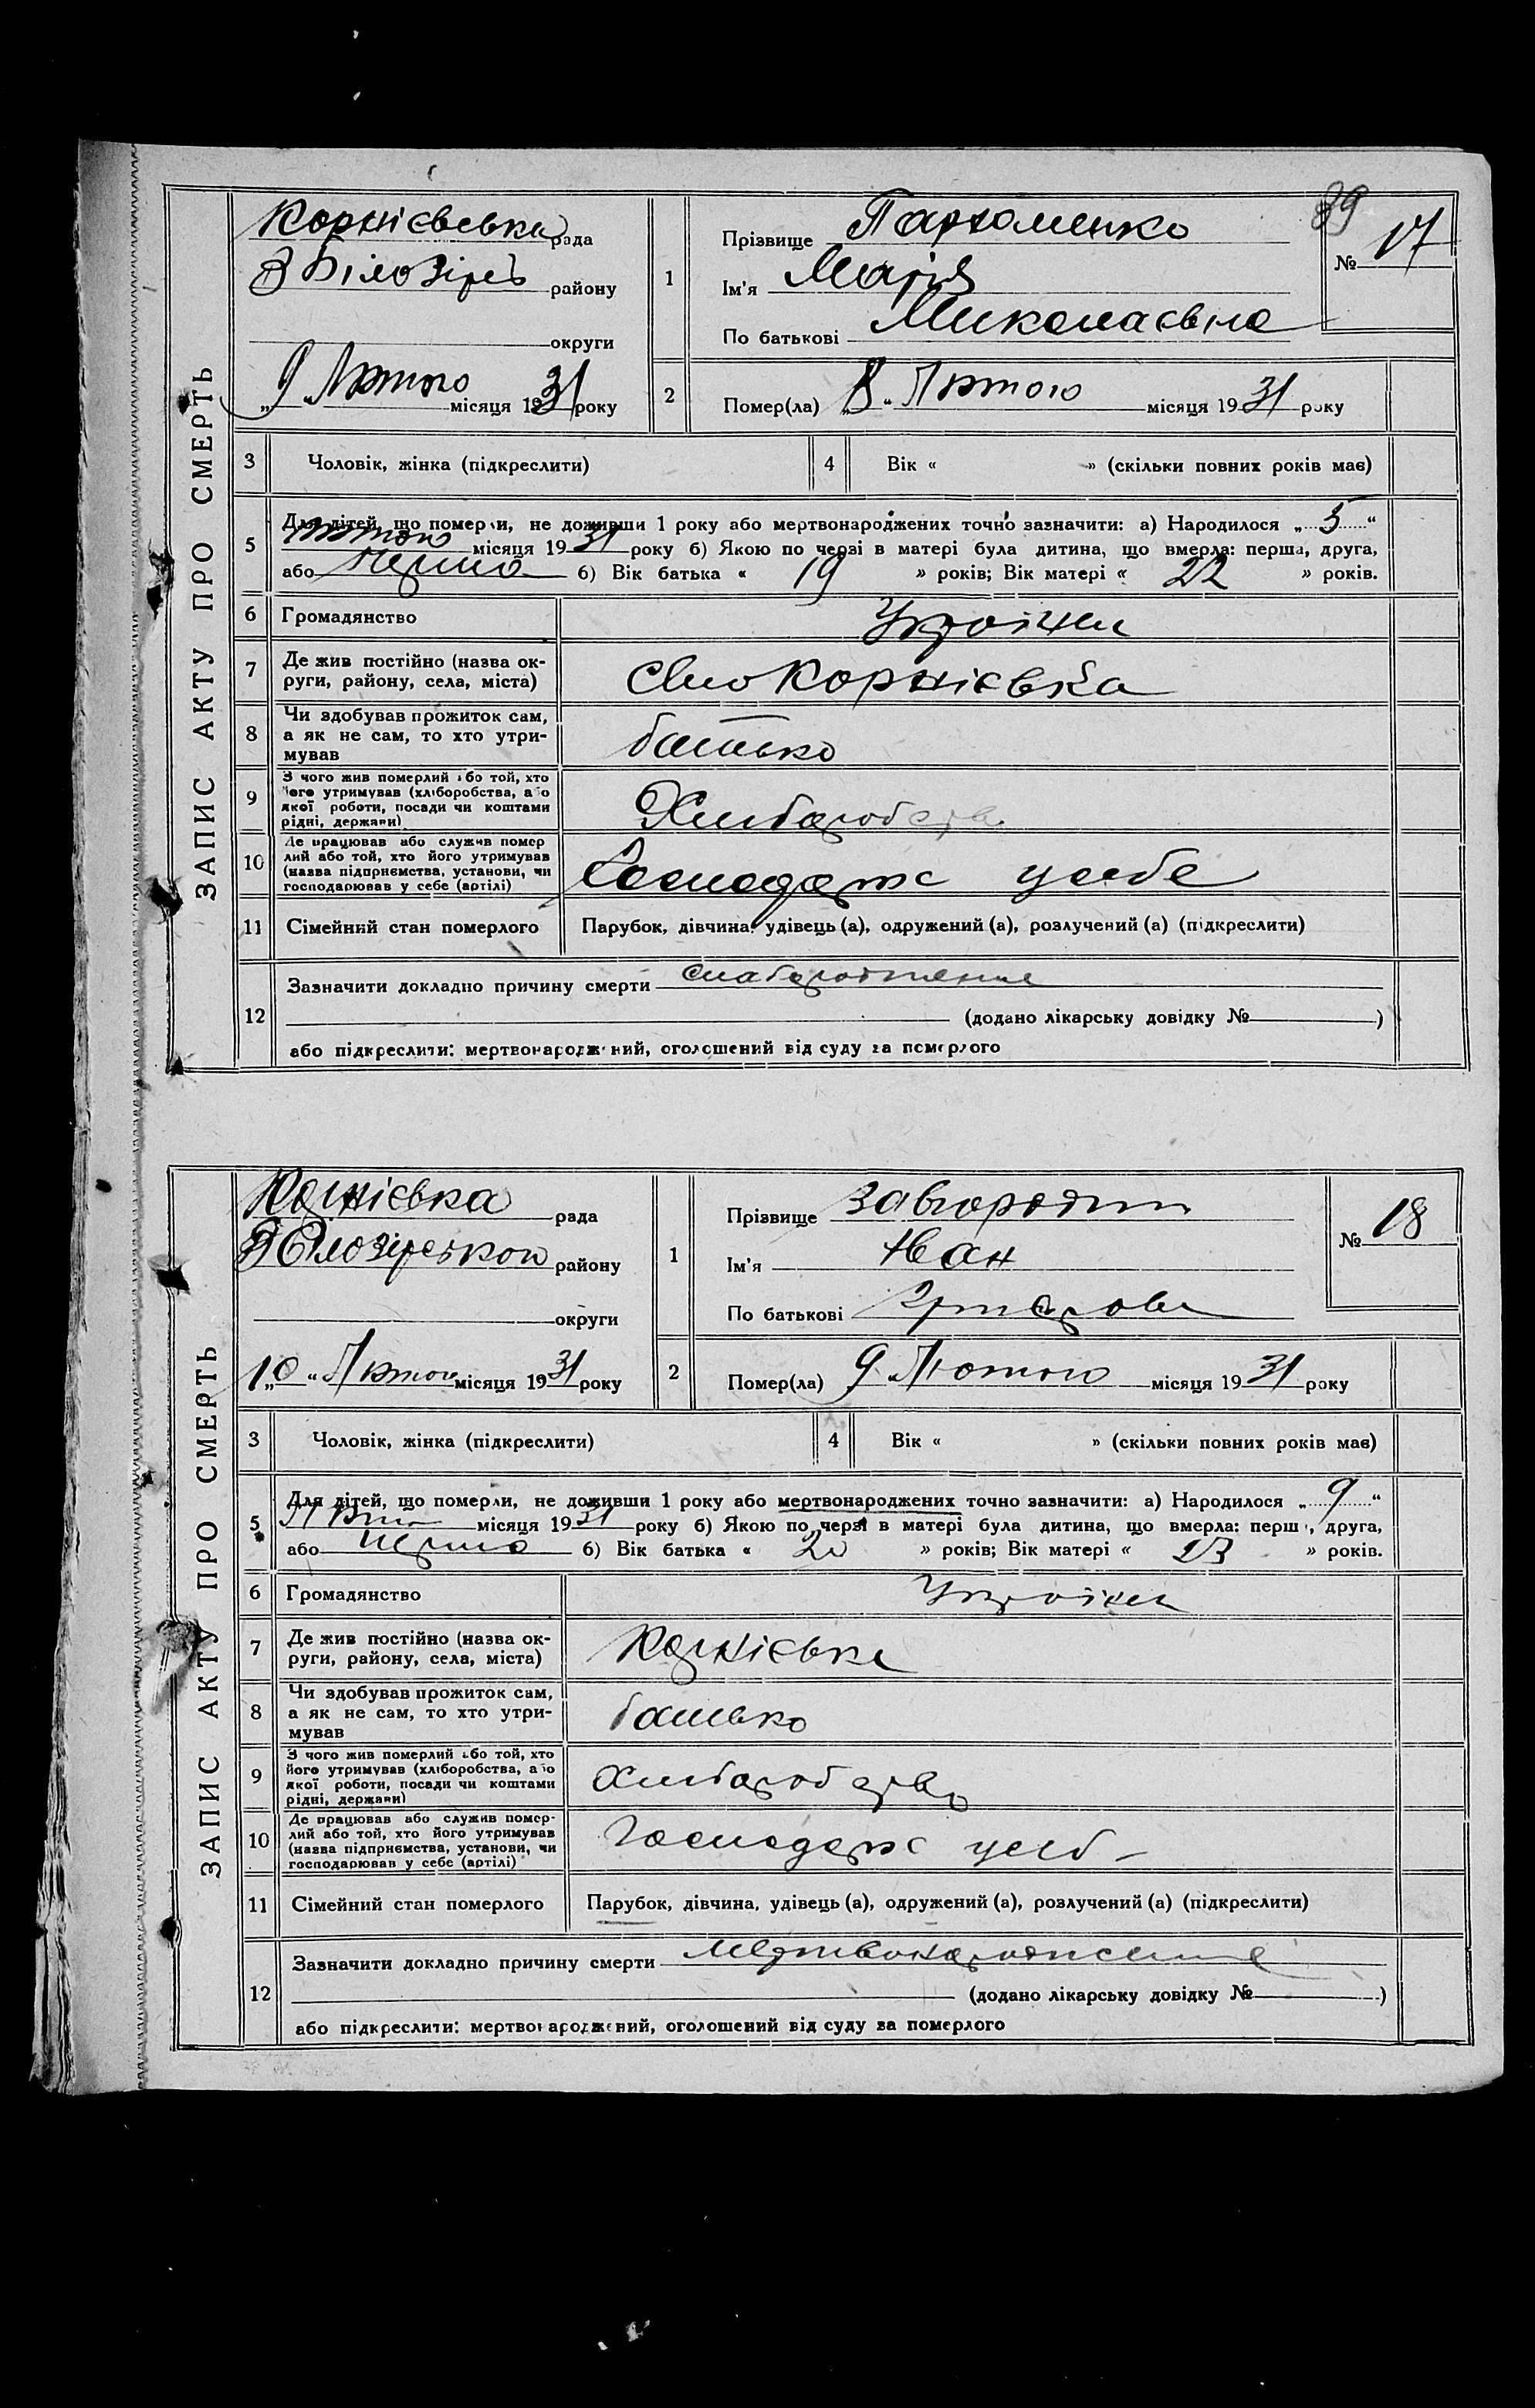 89
ЗАПИС АКТУ ПРО СМЕРТЬ
Корнієвська рада
Білозірсь району
округи
9 Лютого місяця 1931 року
1
Прізвище Пархоменко
Ім'я Марія
По батькові Миколаєвна
№ 17
2
Помер(ла) „8“ Лютого місяця 1931 року
3 Чоловік, жінка (підкреслити)
4 Вік « » (скільки повних років має)
5 Для дітей, що померли, не доживши 1 року або мертвонароджених точно зазначити: а) Народилося „5“
Лютого місяця 1931 року б) Якою по черзі в матері була дитина, що вмерла: перша, друга,
або Перша б) Вік батька « 19 » років; Вік матері « 22 » років.
6 Громадянство
7 Де жив постійно (назва ок-
руги, району, села, міста)
Село Корнієвка
8 Чи здобував прожиток сам,
а як не сам, то хто утри-
мував
батько
9 З чого жив померлий або той, хто
його утримував (хліборобства, або
якої роботи, посади чи коштами
рідні, держави)
Хліборобства
10 Де працював або служив помер
лий або той, хто його утримував
(назва підприємства, установи, чи
господарював у себе (артілі)
Господарює усебе
11 Сімейний стан померлого Парубок, дівчина, удівець (а), одружений (а), розлучений (а) (підкреслити)
12 Зазначити докладно причину смерти
(додано лікарську довідку № )
або підкреслити: мертвонароджений, оголошений від суду за померлого
ЗАПИС АКТУ ПРО СМЕРТЬ
Корнієвка рада
Білозірського району
округи
„10“ Лютого місяця 1931 року
1
Прізвище Завгородни
Ім'я Іван
По батькові
№ 18
2
Помер(ла) 9 Лютого місяця 1931 року
3 Чоловік, жінка (підкреслити)
4 Вік « » (скільки повних років має)
5 Для дітей, що померли, не доживши 1 року або мертвонароджених точно зазначити: а) Народилося „9“
місяця 1931 року б) Якою по черзі в матері була дитина, що вмерла: перша, друга,
або Перша б) Вік батька « 20 » років; Вік матері « 23 » років.
6 Громадянство
7 Де жив постійно (назва ок-
руги, району, села, міста)
Корнієвка
8 Чи здобував прожиток сам,
а як не сам, то хто утри-
мував
батько
9 З чого жив померлий або той, хто
його утримував (хліборобства, або
якої роботи, посади чи коштами
рідні, держави)
Хліборобство
10 Де працював або служив помер-
лий або той, хто його утримував
(назва підприємства, установи, чи
господарював у себе (артілі)
Господарює усеб
11 Сімейний стан померлого Парубок, дівчина, удівець (а), одружений (а), розлучений (а) (підкреслити)
12 Зазначити докладно причину смерти Мертвонароження
(додано лікарську довідку № )
або підкреслити: мертвонароджений, оголошений від суду за померлого